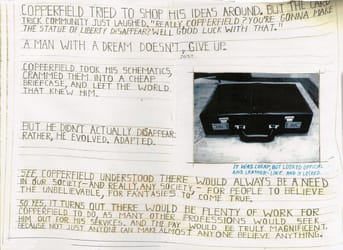 COPPERFIELD TRIED TO SHOP HIS IDEAS AROUND. BUT THE CARD
TRICK COMMUNITY JUST LAUGHED. "REALLY, COPPERFIELD? YOU'RE GONNA MAKE
THE STATUE OF LIBERTY DISAPPEAR? WELL GOOD LUCK WITH THAT."
A MAN WITH A DREAM DOESN'T JUST GIVE UP.
COPPERFIELD TOOK HIS SCHEMATICS,
CRAMMED THEM INTO A CHEAP
BRIEFCASE, AND LEFT THE WORLD
THAT KNEW HIM.
BUT HE DIDN'T ACTUALLY DISAPPEAR:
RATHER, HE EVOLVED. ADAPTED.
IT WAS CHEAP, BUT LOOKED OFFICIAL
AND LEATHER-LIKE. AND IT LOCKED.
SEE, COPPERFIELD UNDERSTOOD THERE WOULD ALWAYS BE A NEED
IN OUR SOCIETY—AND REALLY, ANY SOCIETY—FOR PEOPLE TO BELIEVE
THE UNBELIEVABLE, FOR FANTASIES TO COME TRUE.
SO YES, IT TURNS OUT THERE WOULD BE PLENTY OF WORK FOR
COPPERFIELD TO DO, AS MANY OTHER PROFESSIONS WOULD SEEK
HIM OUT FOR HIS SERVICES. AND THE PAY WOULD BE TRULY MAGNIFICENT.
BECAUSE NOT JUST ANYONE CAN MAKE ALMOST ANYONE BELIEVE ANYTHING.